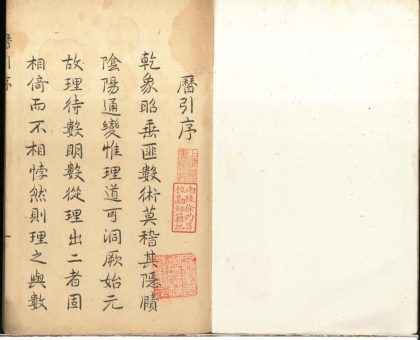 曆引序
乾象昭垂匪數術莫稽其隱賾
陰陽通變惟理道可洞厥始元
故理待數明數從理出二者固
相倚而不相悖然則理之與數
曆引序
一